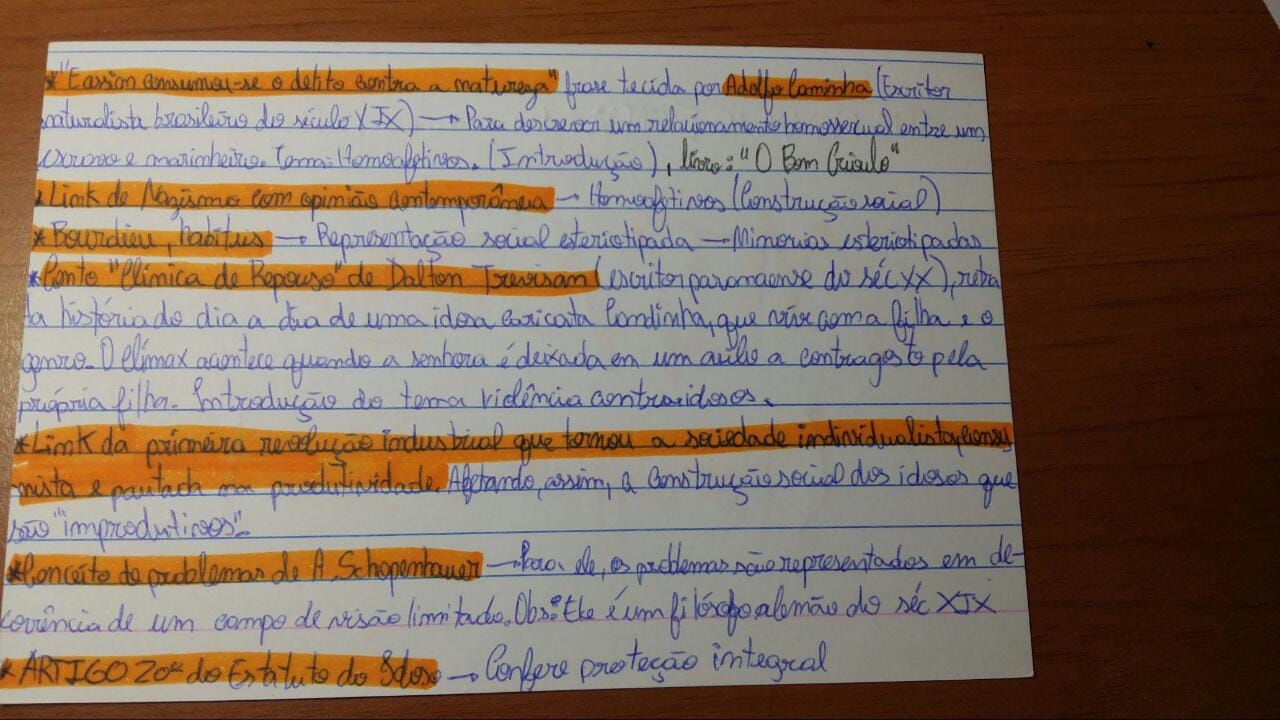 *"E assim consumou-se o delito contra a natureza" frase tecida por Adolfo Caminha (Escritor
naturalista brasileiro do século XIX) → Para descrever um relacionamento homossexual entre um
escravo e marinheiro. Tema: Homoafetivos. (Introdução), livro: "O Bom Crioulo"
*Link do Nazismo com opinião contemporânea → Homoafetivos (Construção social)
*Bourdieu, habitus → Representação social esteriotipada → Minorias esteriotipadas
*Conto "Clínica de Repouso" de Dalton Trevisan (escritor paranaense do séc XX), retra
ta história do dia a dia de uma idosa caricata Candinha, que vive com a filha e o
genro. O clímax acontece quando a senhora é deixada em um asilo a contragosto pela
própria filha. Introdução do tema violência contra idosos.
*Link da primeira revolução industrial que tornou a sociedade individualista, consu
mista e pautada na produtividade. Afetando, assim, a construção social dos idosos que
são "improdutivos".
*Conceito de problemas de A. Schopenhauer → Para ele, os problemas são representados em de-
corrência de um campo de visão limitado. Obs: Ele é um filósofo alemão do séc XIX
*ARTIGO 20º do Estatuto do Idoso → Confere proteção integral